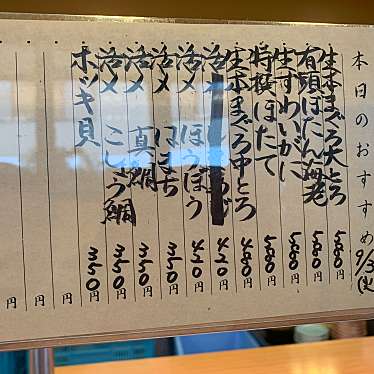 本日のおすすめ 9/3(火)
生本まぐろ大とろ 580円
有頭ぼたん海老 580円
生ずわいがに 580円
特撰ほたて 580円
生本まぐろ中とろ 480円
活〆 420円
活〆 ほうぼう 420円
活〆 はまち 350円
活〆 真鯛 350円
活〆 こしょう鯛 350円
ホッキ貝 350円
円
円
円